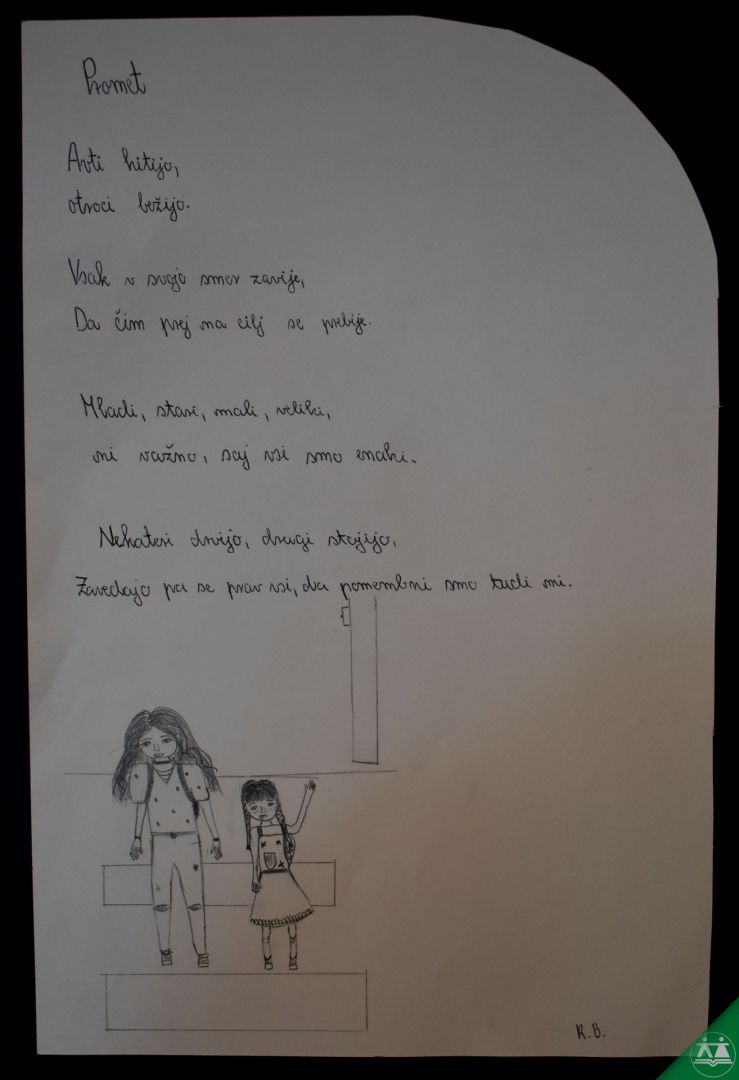 Promet
Avti hitijo,
otroci bežijo.
Vsak v svojo smer zavije,
Da čim prej na cilj se prebije.
Mladi, stari, mali, veliki,
ni važno, saj vsi smo enaki.
Nekateri drvijo, drugi stojijo,
Zavedajo pa se prav vsi, da pomembni smo tudi mi.
K.B.